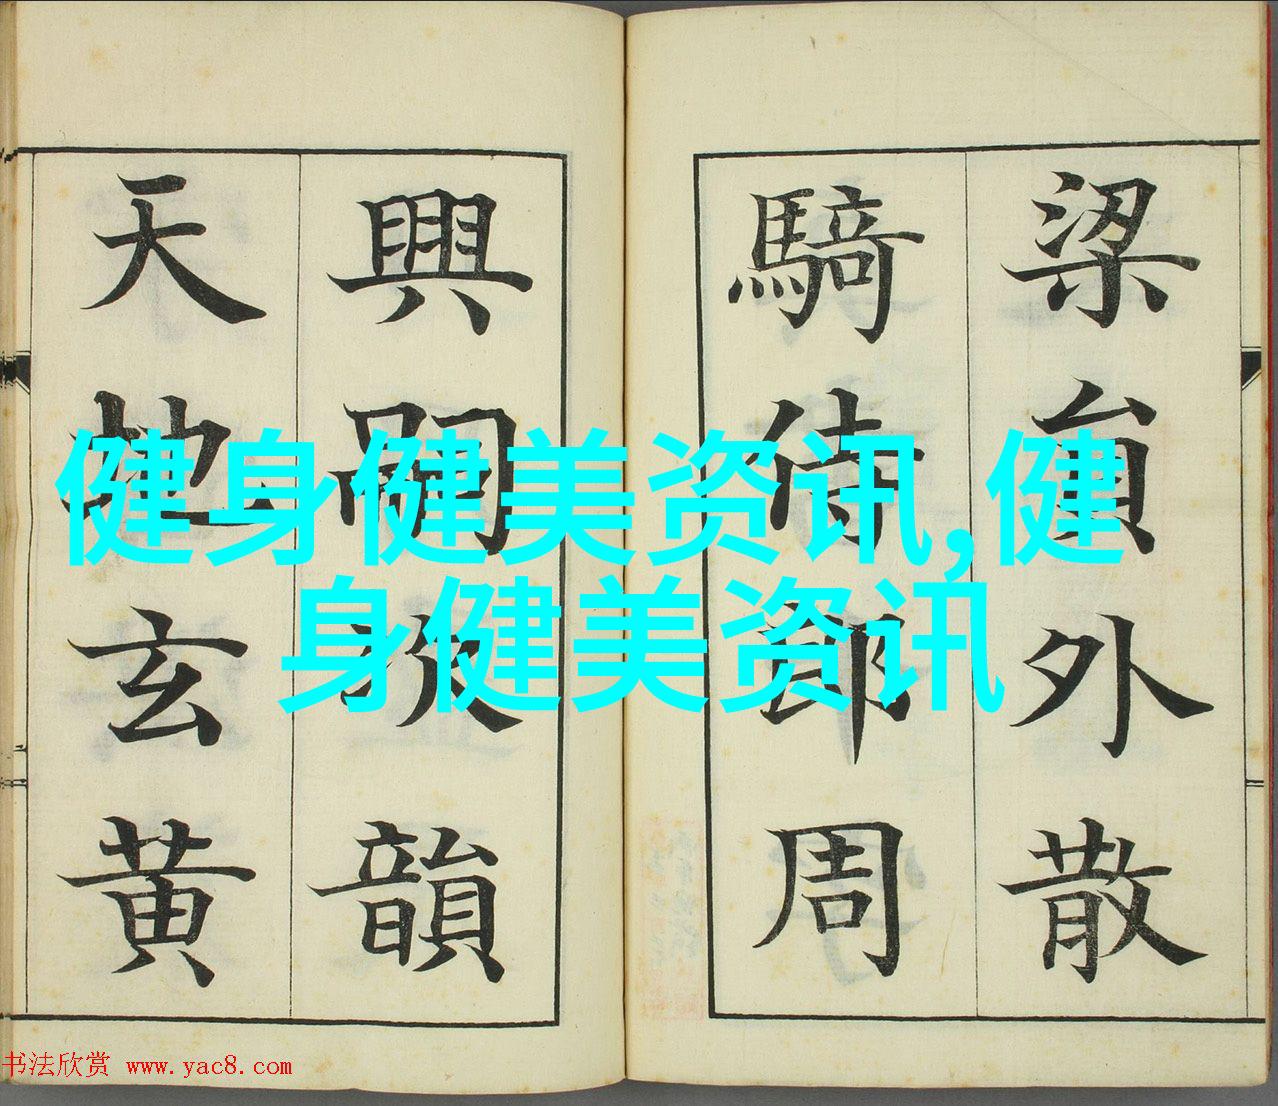 梁貟外散
騎侍郎周
興嗣次韻
天地玄黄
健身健美资讯,健
身健美资讯
书法欣赏 www.yac8.com